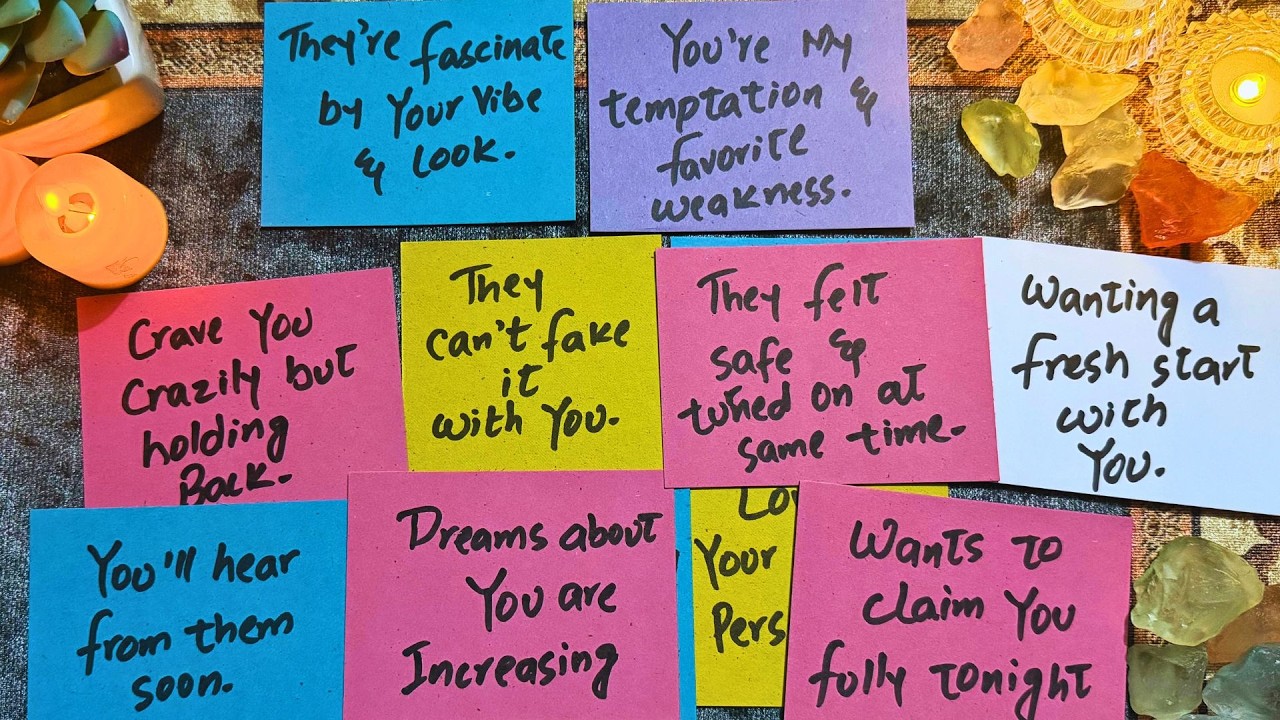 They're fascinate
by Your Vibe
& Look.
You're My
temptation &
favorite
weakness.
Crave You
Crazily but
holding
Back.
They
can't fake
it
with You.
They felt
safe &
turned on at
same time.
Wanting a
fresh start
with
You.
You'll hear
from them
soon.
Dreams about
You are
Increasing
Your
Wants to
claim You
fully tonight